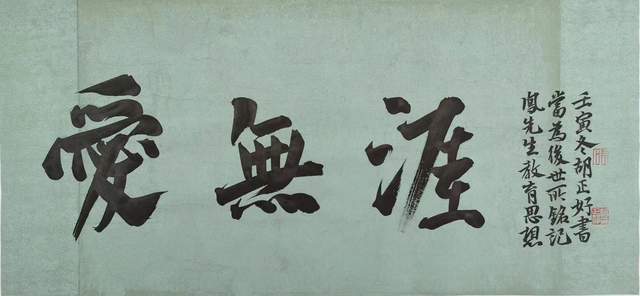 愛無涯
鳳先生教育思想
當為後世所銘記
壬寅冬胡正好書